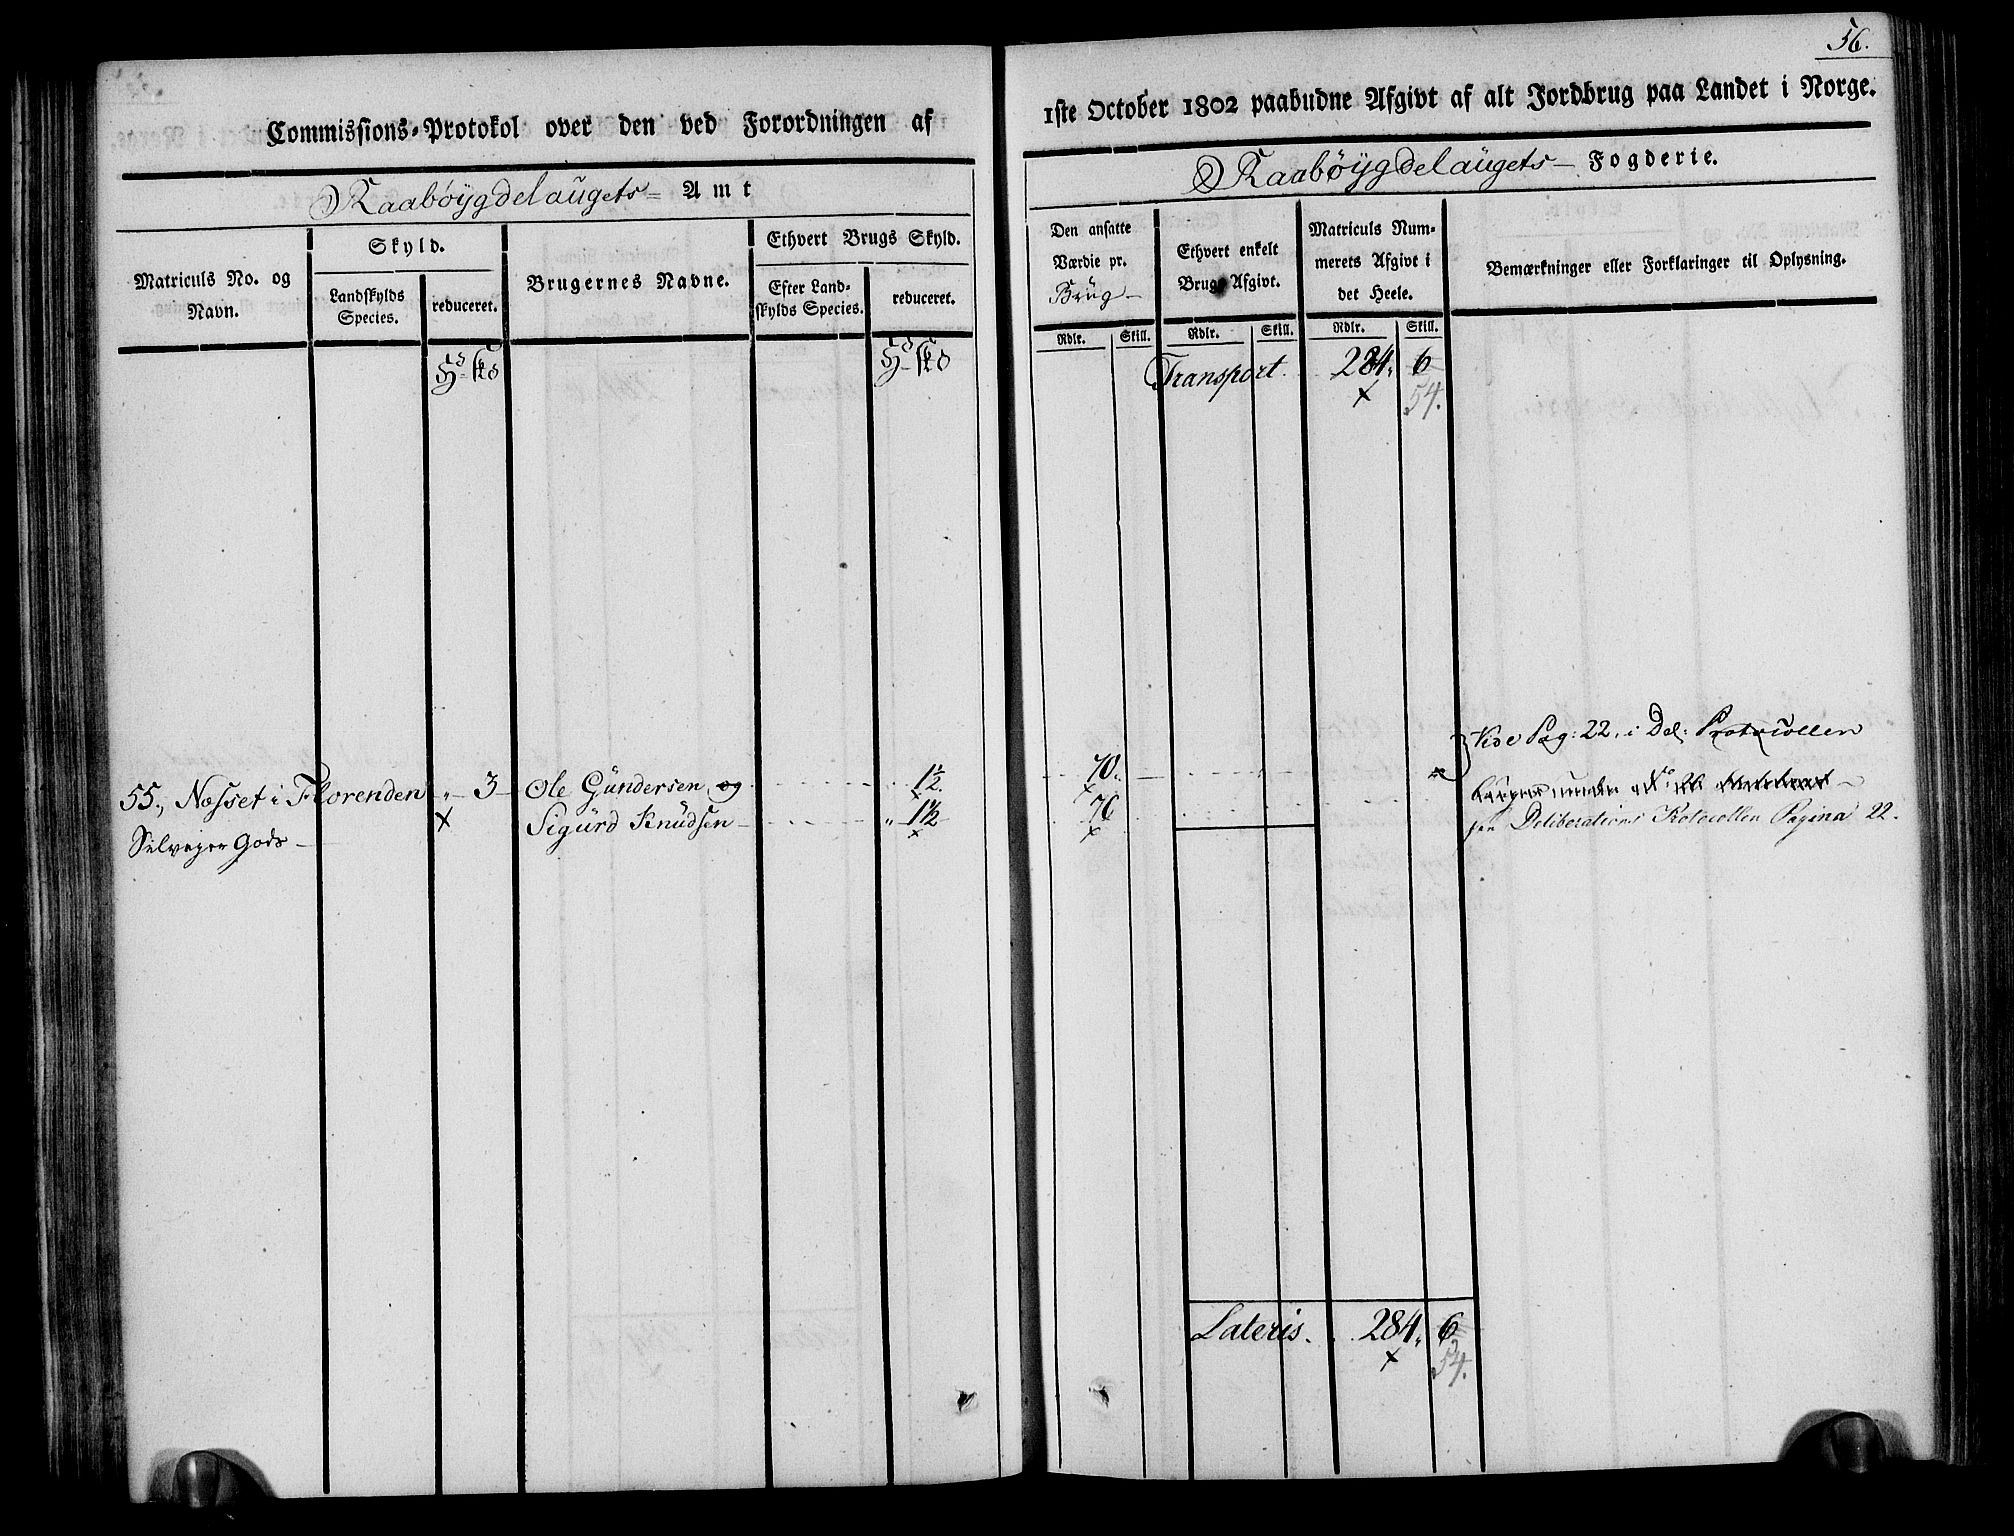 56.
Commissions-Protokol over den ved Forordningen af
1ste October 1802 paabudne Afgivt af alt Jordbrug paa Landet i Norge.
Raabøygdelaugets Amt
Raabøygdelaugets Fogderie.
Matriculs No. og
Navn.
Skyld.
Landskylds
Species.
reduceret.
Brugernes Navne.
Ethvert Brugs Skyld.
Efter Land-
skylds Species.
reduceret.
Den ansatte
Værdie pr.
Brug
Rdlr. Skill.
Ethvert enkelt
Brugs Afgivt.
Rdlr. Skill.
Matriculs Num-
merets Afgivt i
det Heele.
Rdlr. Skill.
Bemærkninger eller Forklaringer til Oplysning.
Transport 284 6
54.
Vide Pag: 22, i Del: Protocollen
55, Næsset i Florenden 3 Ole Gundersen og 1½ 70
Sigurd Knudsen 1½ 70
Deliberations Protocollen Pagina 22.
Selveyer Gods
Lateris. 284 6
54.